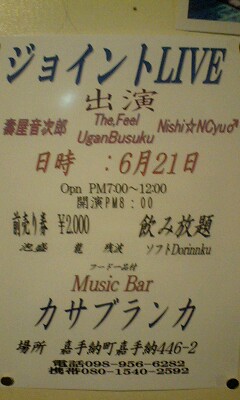 ジョイントLIVE
出演
壽屋音次郎 The,Feel Nishi☆NCyu♂
UganBusuku
日時 :6月21日
Opn PM7:00~12:00
開演PM8:00
前売り券 ¥2,000 飲み放題
泡盛 龍 残波 ソフトDorinnku
フード一品付
Music Bar
カサブランカ
場所 嘉手納町嘉手納446-2
電話098-956-6282
携帯080-1540-2592